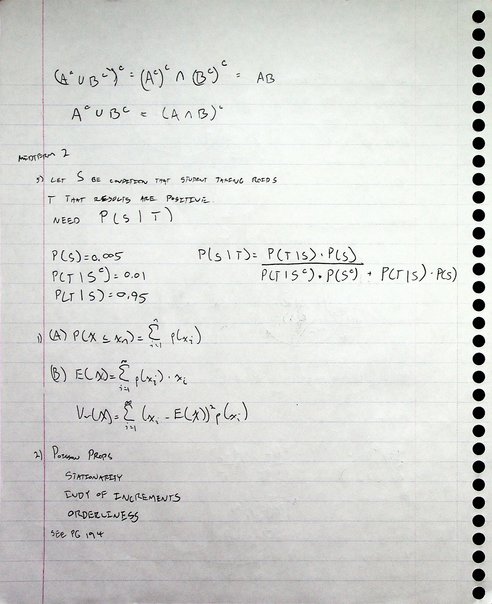 (Aᶜ ∪ Bᶜ)ᶜ = (Aᶜ)ᶜ ∩ (Bᶜ)ᶜ = AB
Aᶜ ∪ Bᶜ = (A ∩ B)ᶜ
MIDTERM 2
5) LET S BE CONDITION THAT STUDENT TAKING ROIDS
T THAT RESULTS ARE POSITIVE
NEED P(S|T)
P(S)=0.005 P(S|T) = P(T|S)·P(S)
P(T|Sᶜ)=0.01 P(T|Sᶜ)·P(Sᶜ) + P(T|S)·P(S)
P(T|S)=0.95
1) (A) P(X ≤ xₙ) = Σⁿᵢ₌₁ p(xᵢ)
(B) E(X) = Σᵢ₌₁ p(xᵢ)·xᵢ
Var(X) = Σᵢ₌₁ (xᵢ - E(X))² p(xᵢ)
2) POISSON PROPS
STATIONARITY
INDY OF INCREMENTS
ORDERLINESS
SEE PG 194